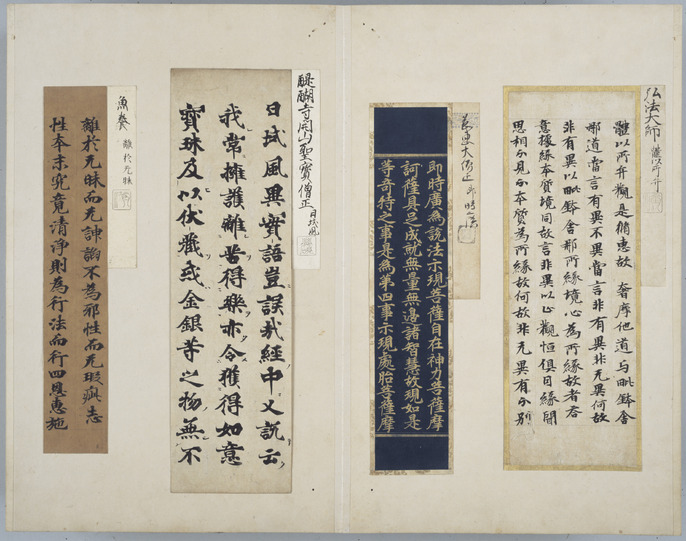 弘法大師
謹以所弁
體以所弁觀是俏恵故 奢摩他道与毗鉢舍
那道當言有異不異當言非有異非无異何故
非有異以毗鉢舍那所緣境心為所緣故者
意據緣本質境同故言非異以止觀恒俱同緣
思相分見分本質為所緣故何故非无異有分別
即時廣為說法示現菩薩自在神力菩薩摩
訶薩具足成就無量無邊諸智慧故現如是
等奇特之事是為第四事示現處胎菩薩摩
醍醐寺開山聖寳僧正
日域風
日域風異實語豈誤哉經中又說云
我常擁護離苦得樂亦令獲得如意
寳珠及以伏藏或金銀等之物無不
魚養
離於无昧
離於无昧而无諍訟不為邪性而无瑕疵志
性本末究竟清淨則為行法而行四恩惠施